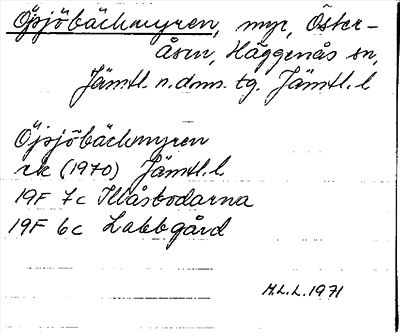 Öjsjöbäckmyren, myr, Öster-
åsen, Häggenås sn,
Jämtl. n. dms. tg. Jämtl. l
Öjsjöbäckmyren
rk (1970) Jämtl. l
19F 7c Illåsbodarna
19F 6c Labbgård
M.L.L. 1971